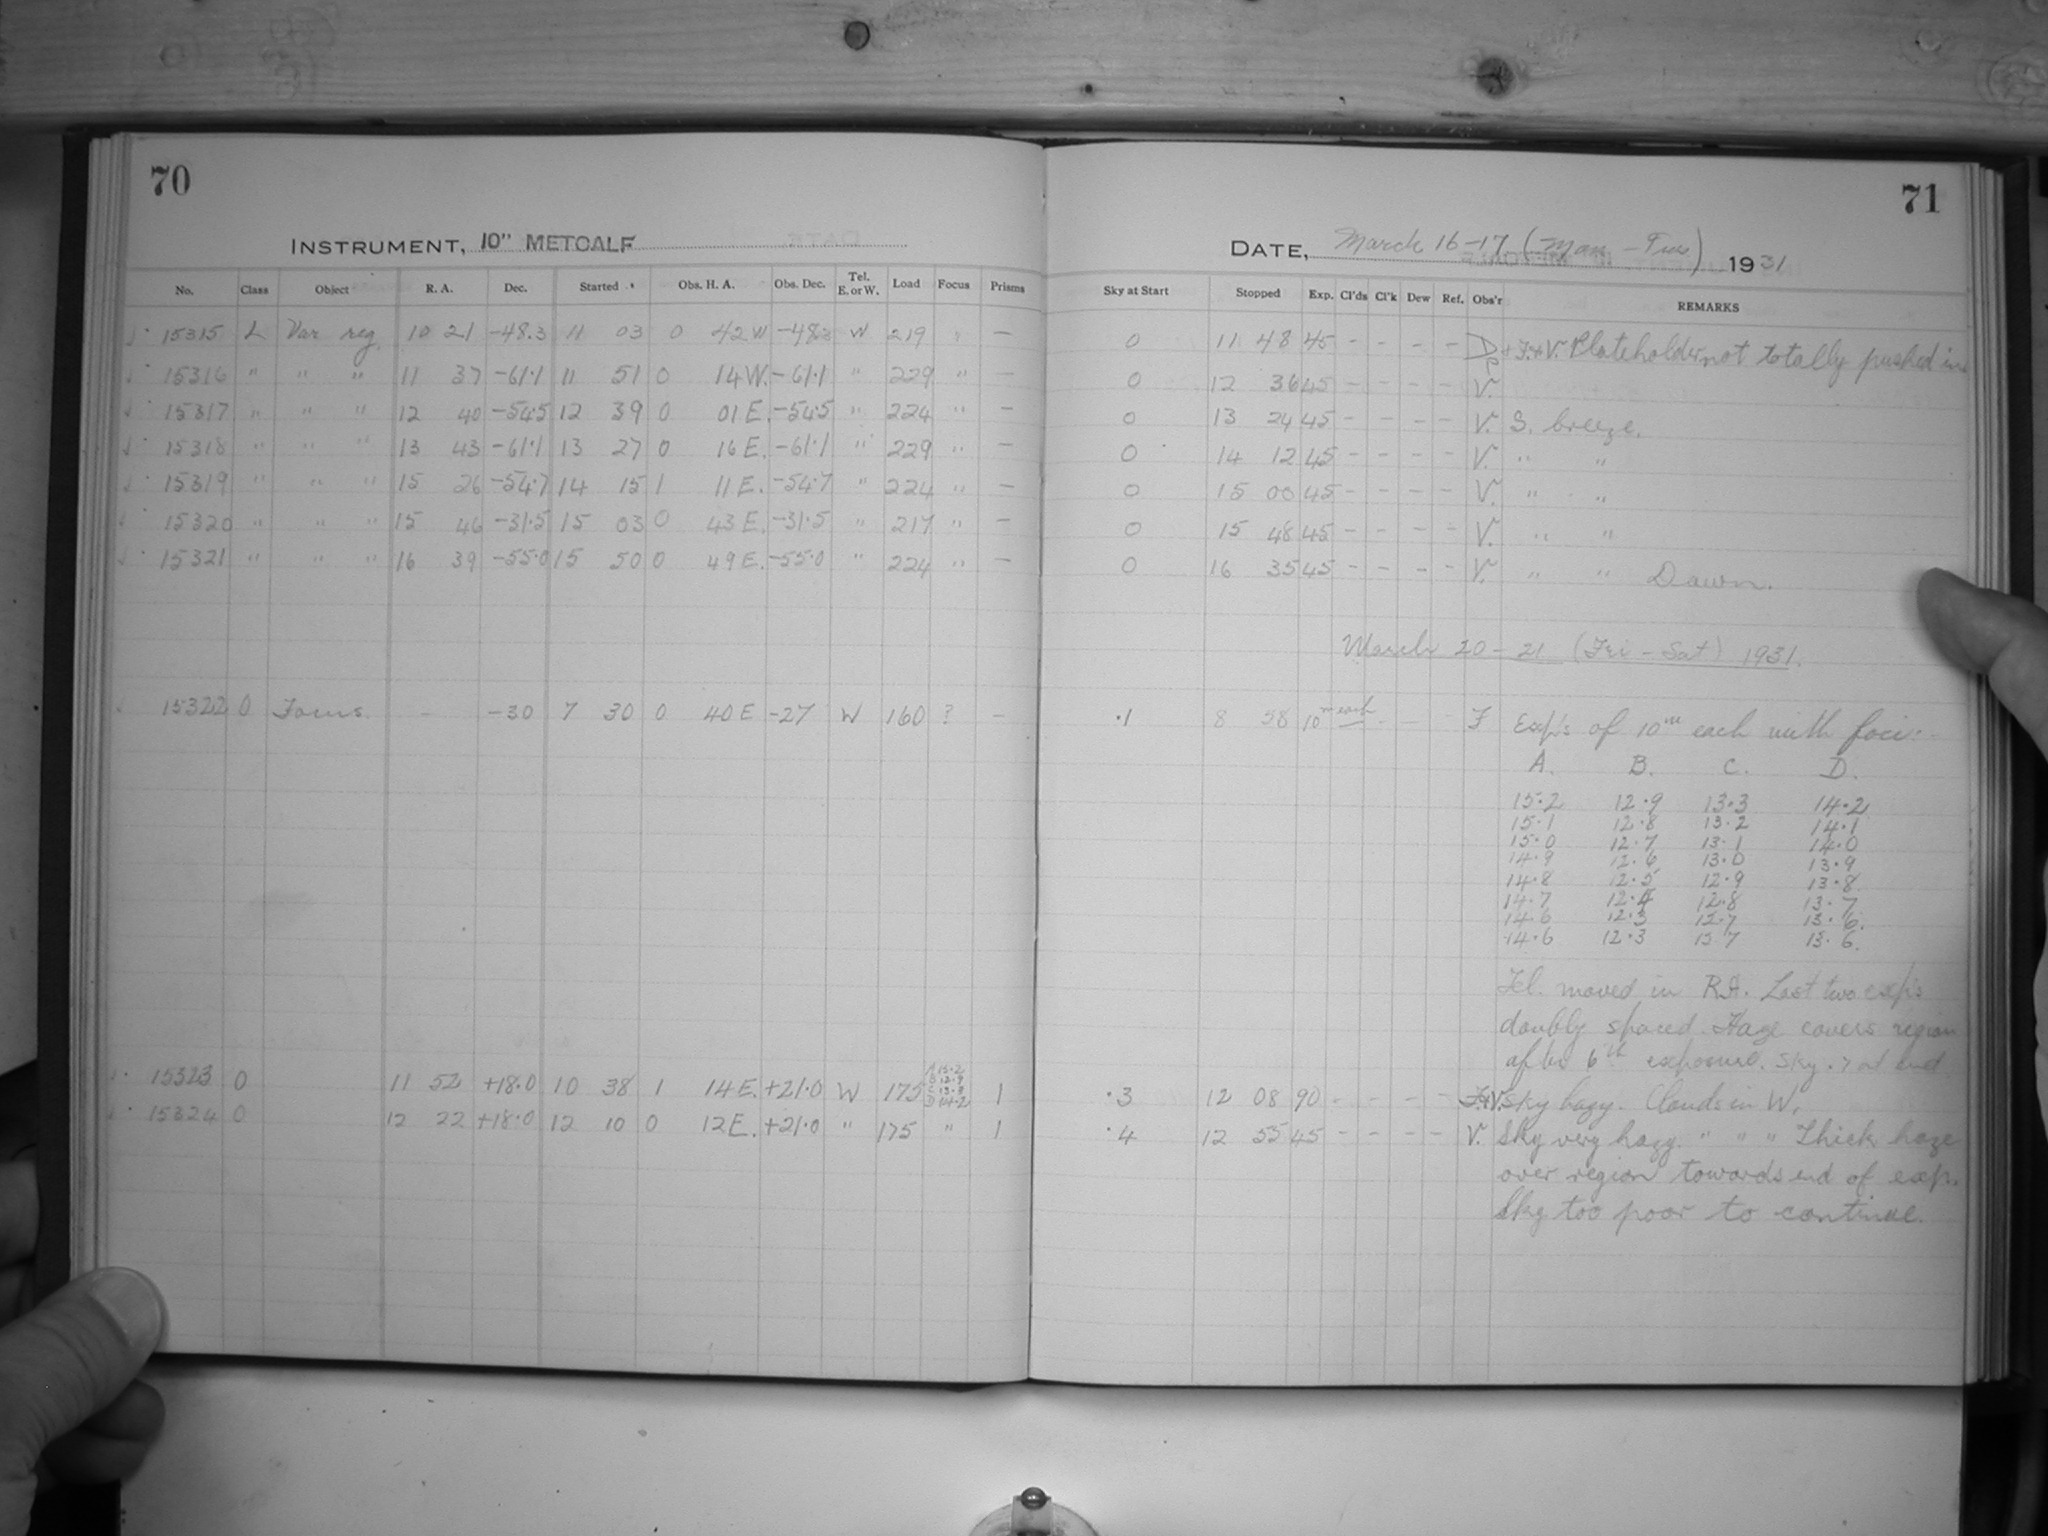 70
INSTRUMENT, 10" METCALF
No. Class Object R. A. Dec. Started Obs. H. A. Obs. Dec. Tel. E. or W. Load Focus Prisms
15315 L Var reg. 10 21 -48.3 11 03 0 42 W -48.3 W 219 " —
15316 " " " 11 37 -61.1 11 51 0 14 W. -61.1 " 229 " —
15317 " " " 12 40 -54.5 12 39 0 01 E. -54.5 " 224 " —
15318 " " " 13 43 -61.1 13 27 0 16 E. -61.1 " 229 " —
15319 " " " 15 26 -54.7 14 15 1 11 E. -54.7 " 224 " —
15320 " " " 15 46 -31.5 15 03 0 43 E. -31.5 " 217 " —
15321 " " " 16 39 -55.0 15 50 0 49 E. -55.0 " 224 " —
15322 O Focus. - -30 7 30 0 40 E -27 W 160 ? —
15323 O 11 52 +18.0 10 38 1 14 E. +21.0 W 175 A 15.2 B 12.9 C 13.3 D 14.2 1
15324 O 12 22 +18.0 12 10 0 12 E. +21.0 " 175 " 1
71
DATE, March 16-17 (Mon - Tues) 1931
Sky at Start Stopped Exp. Cl'ds Cl'k Dew Ref. Obs'r REMARKS
0 11 48 45 - - - - + F.+V. Plateholder not totally pushed in
0 12 36 45 - - - - V.
0 13 24 45 - - - - V. S. breeze.
0 14 12 45 - - - - V. " "
0 15 00 45 - - - - V. " "
0 15 48 45 - - - - V. " "
0 16 35 45 - - - - V. " " Dawn.
March 20-21 (Fri - Sat) 1931.
.1 8 58 10m each - - - F Exp's of 10m each with foci:-
A. B. C. D.
15.2 12.9 13.3 14.2
15.1 12.8 13.2 14.1
15.0 12.7 13.1 14.0
14.9 12.6 13.0 13.9
14.8 12.5 12.9 13.8
14.7 12.4 12.8 13.7
14.6 12.3 12.7 13.6.
14.6 12.3 13.6.
Tel. moved in R.A. Last two exp's
doubly spaced. Haze covers region
after 6th exposure. Sky .7 at end
.3 12 08 90 - - - - F.+V. Sky hazy. Clouds in W.
.4 12 55 45 - - - - V. Sky very hazy. " " " Thick haze
over region towards end of exp.
Sky too poor to continue.